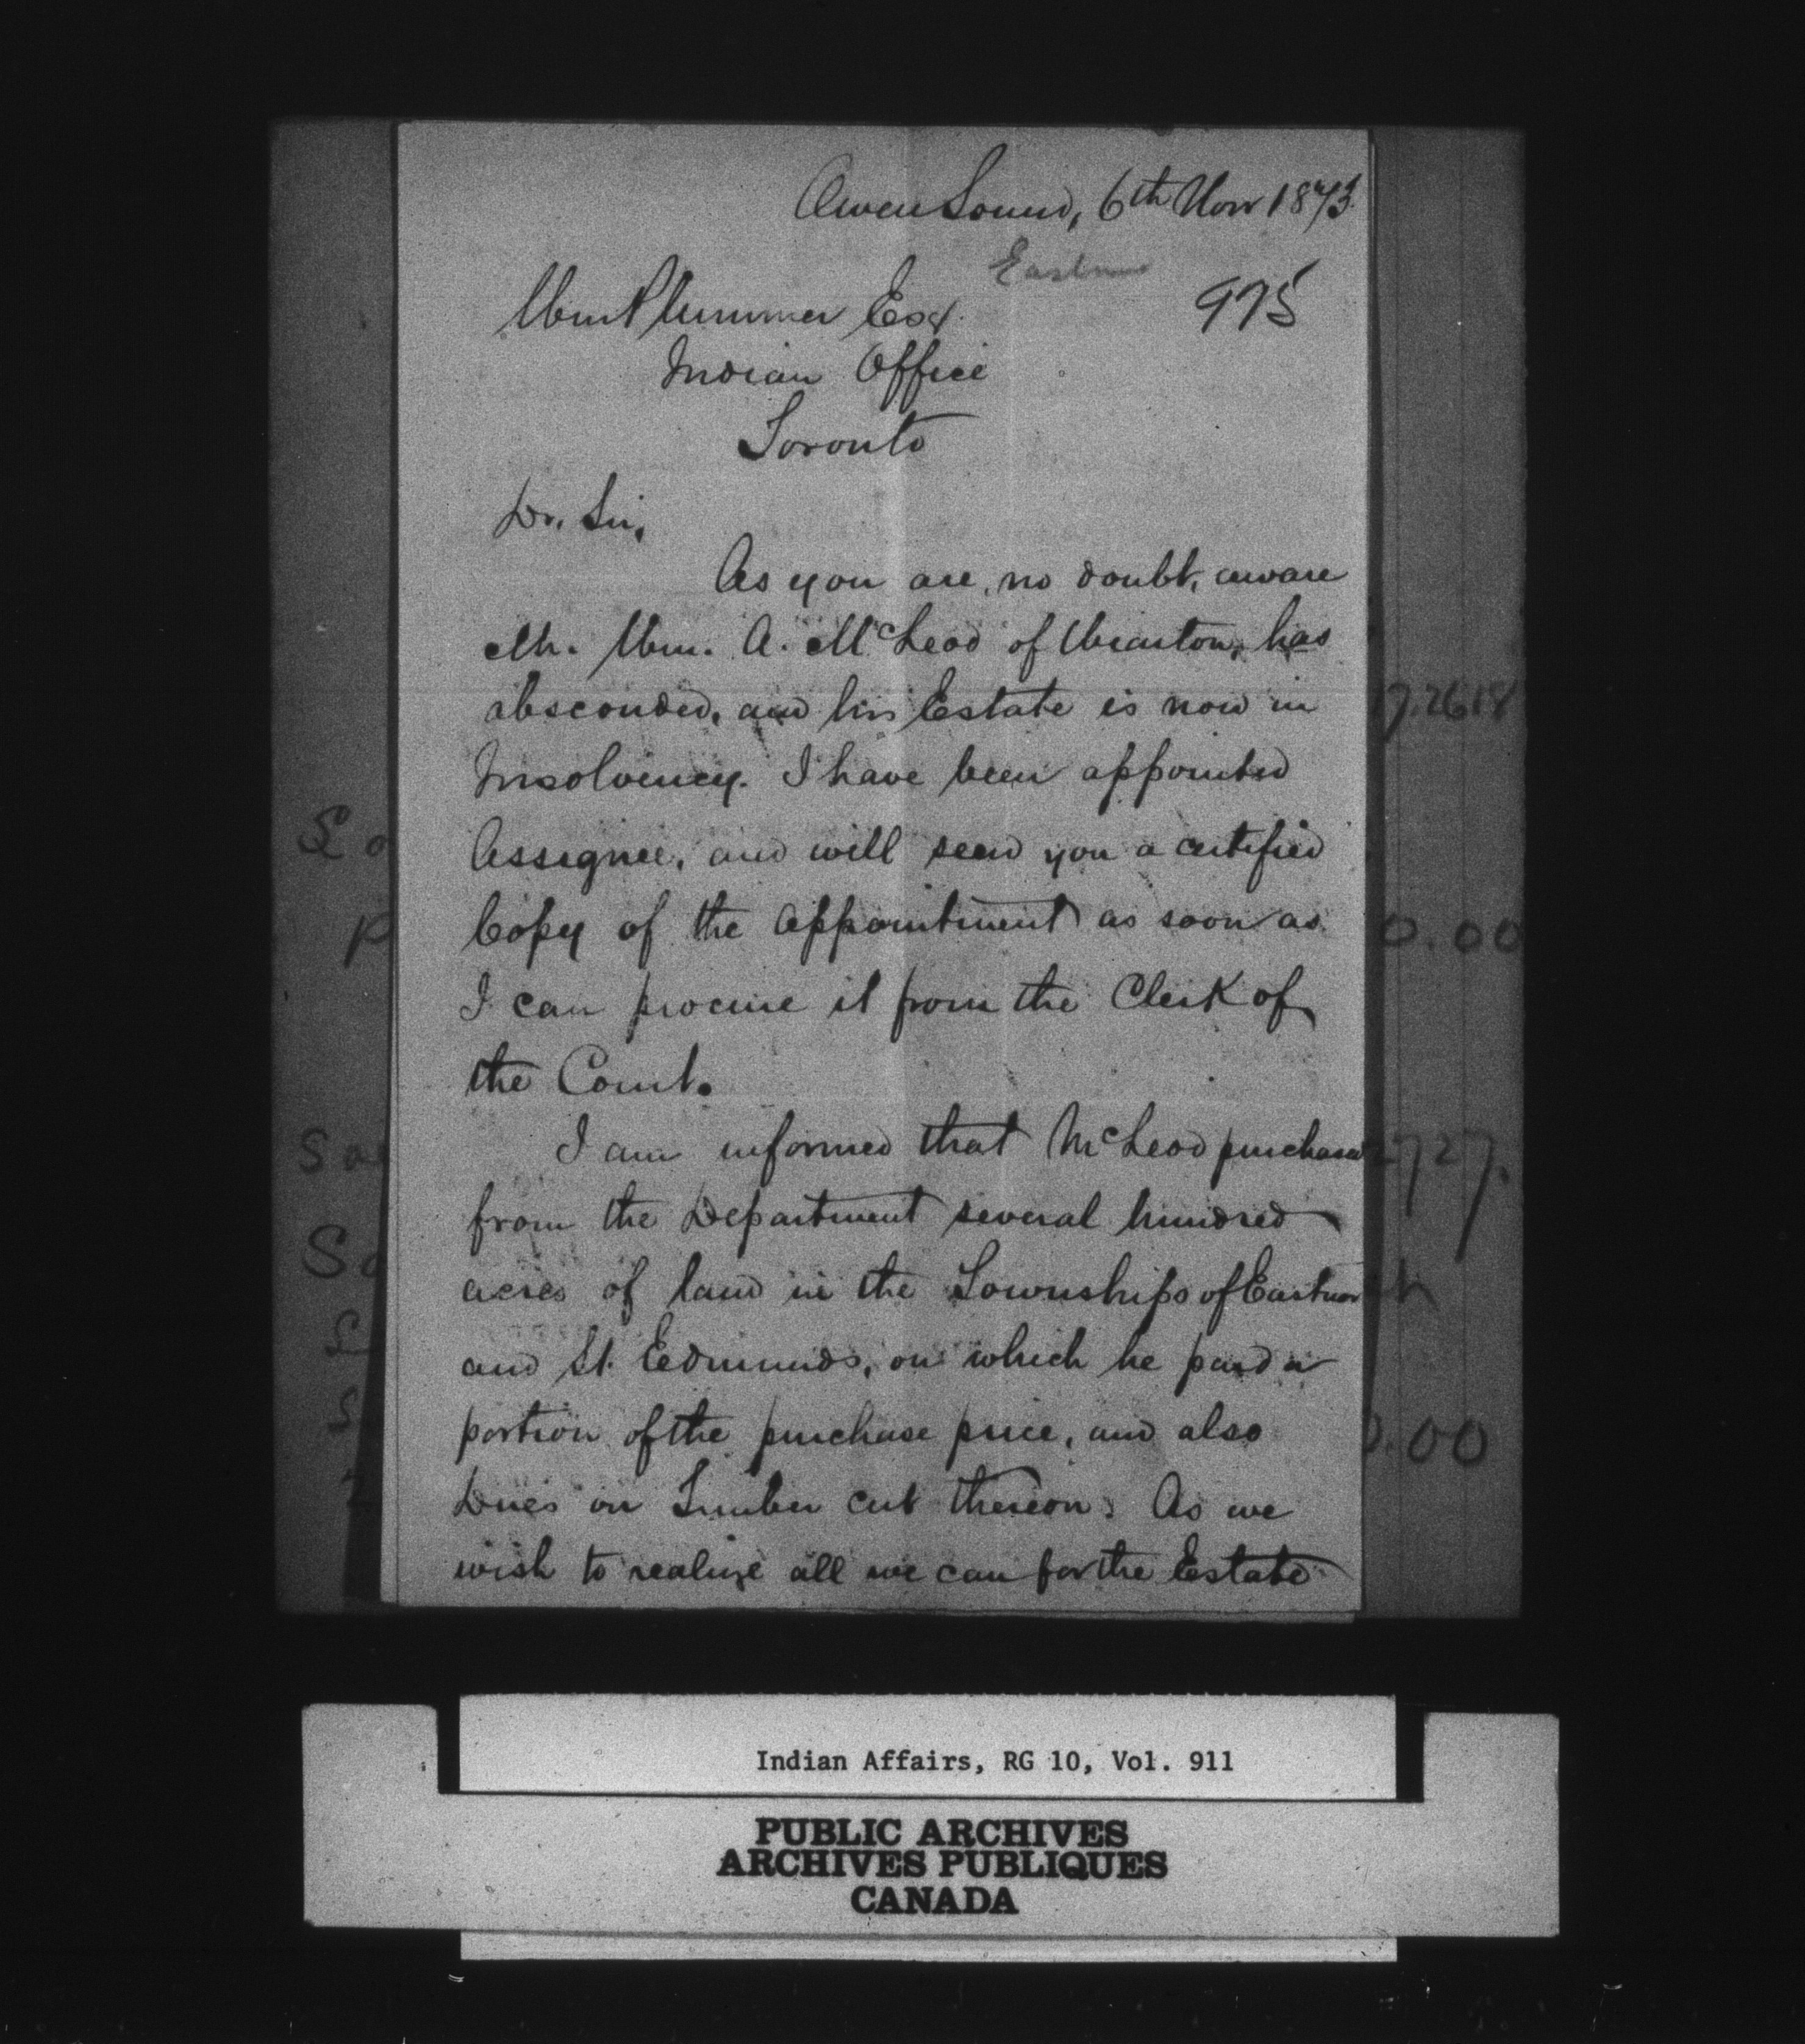 Owen Sound, 6th Nov 1873
Eastnor
975
Wm Plummer Esq.
Indian Office
Toronto
Dr. Sir,
As you are, no doubt, aware
Mr. Wm. A. McLeod of Wiarton, has
absconded, and his Estate is now in
Insolvency. I have been appointed
Assignee, and will send you a certified
Copy of the appointment as soon as
I can procure it from the Clerk of
the Court.
I am informed that McLeod purchased
from the Department several hundred
acres of land in the Townships of Eastnor
and St. Edmunds, on which he paid a
portion of the purchase price, and also
Dues on Timber cut thereon. As we
wish to realize all we can for the Estate
17.2618
0.00
2727.
0.00
Indian Affairs, RG 10, Vol. 911
PUBLIC ARCHIVES
ARCHIVES PUBLIQUES
CANADA